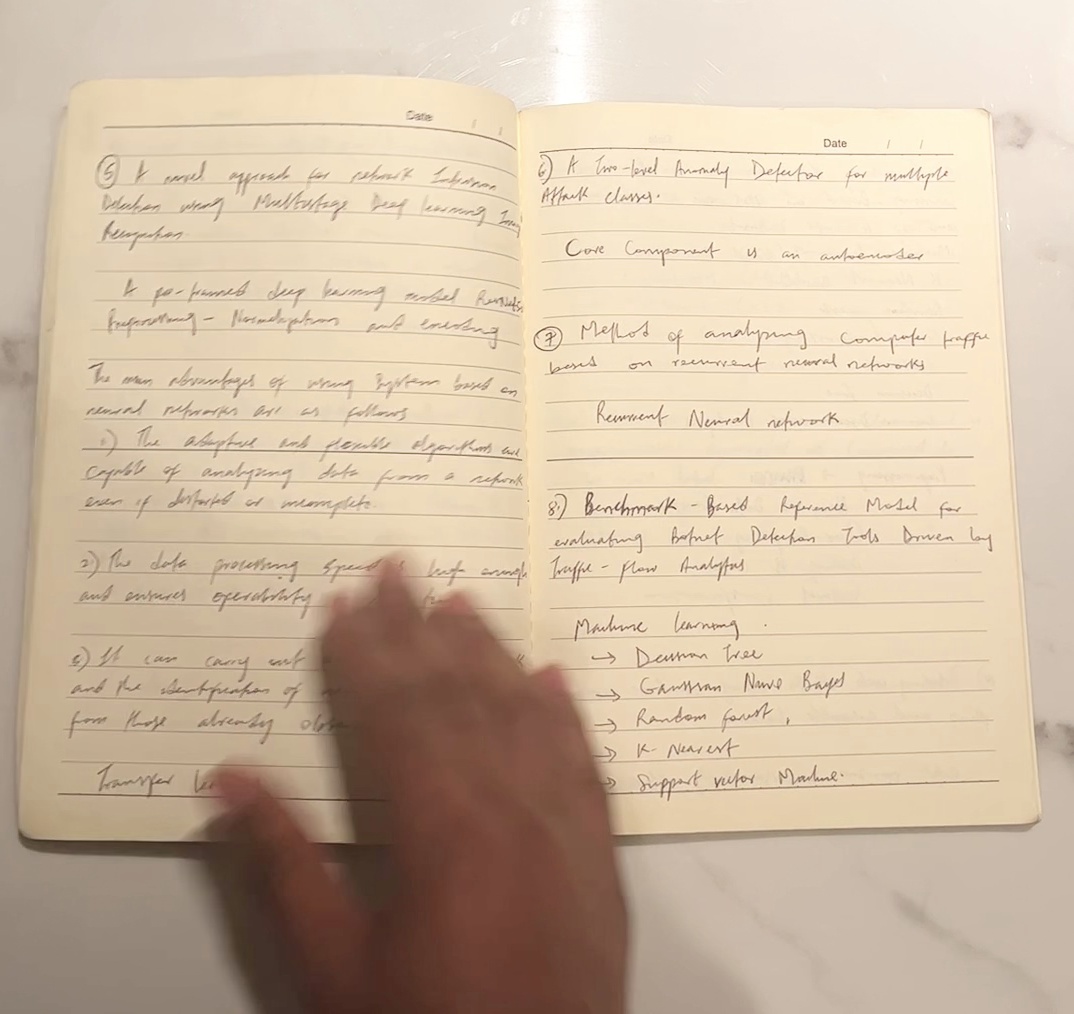 Date / /
⑤ A novel approach for network Intrusion
Detection using Multistage Deep learning
Recognition.
A pre-trained deep learning model
Preprocessing - Normalization and encoding
The main advantages of using System based on
neural networks are as follows
1) The adaptive and flexible algorithms are
capable of analyzing data from a network
even if distorted or incomplete.
2) The data processing speed is high enough
and ensures operability
3) It can carry out
and the identification of
from those already
Transfer
Date / /
6) A Two-level Anomaly Detector for multiple
Attack classes.
Core Component is an autoencoder
⑦ Method of analyzing Computer traffic
based on recurrent neural networks
Recurrent Neural network
8.) Benchmark - Based Reference Model for
evaluating Botnet Detection Tools Driven by
Traffic - Flow Analytics
Machine learning .
→ Decision Tree
→ Gaussian Naive Bayes
→ Random forest,
→ K- Nearest
→ Support vector Machine.